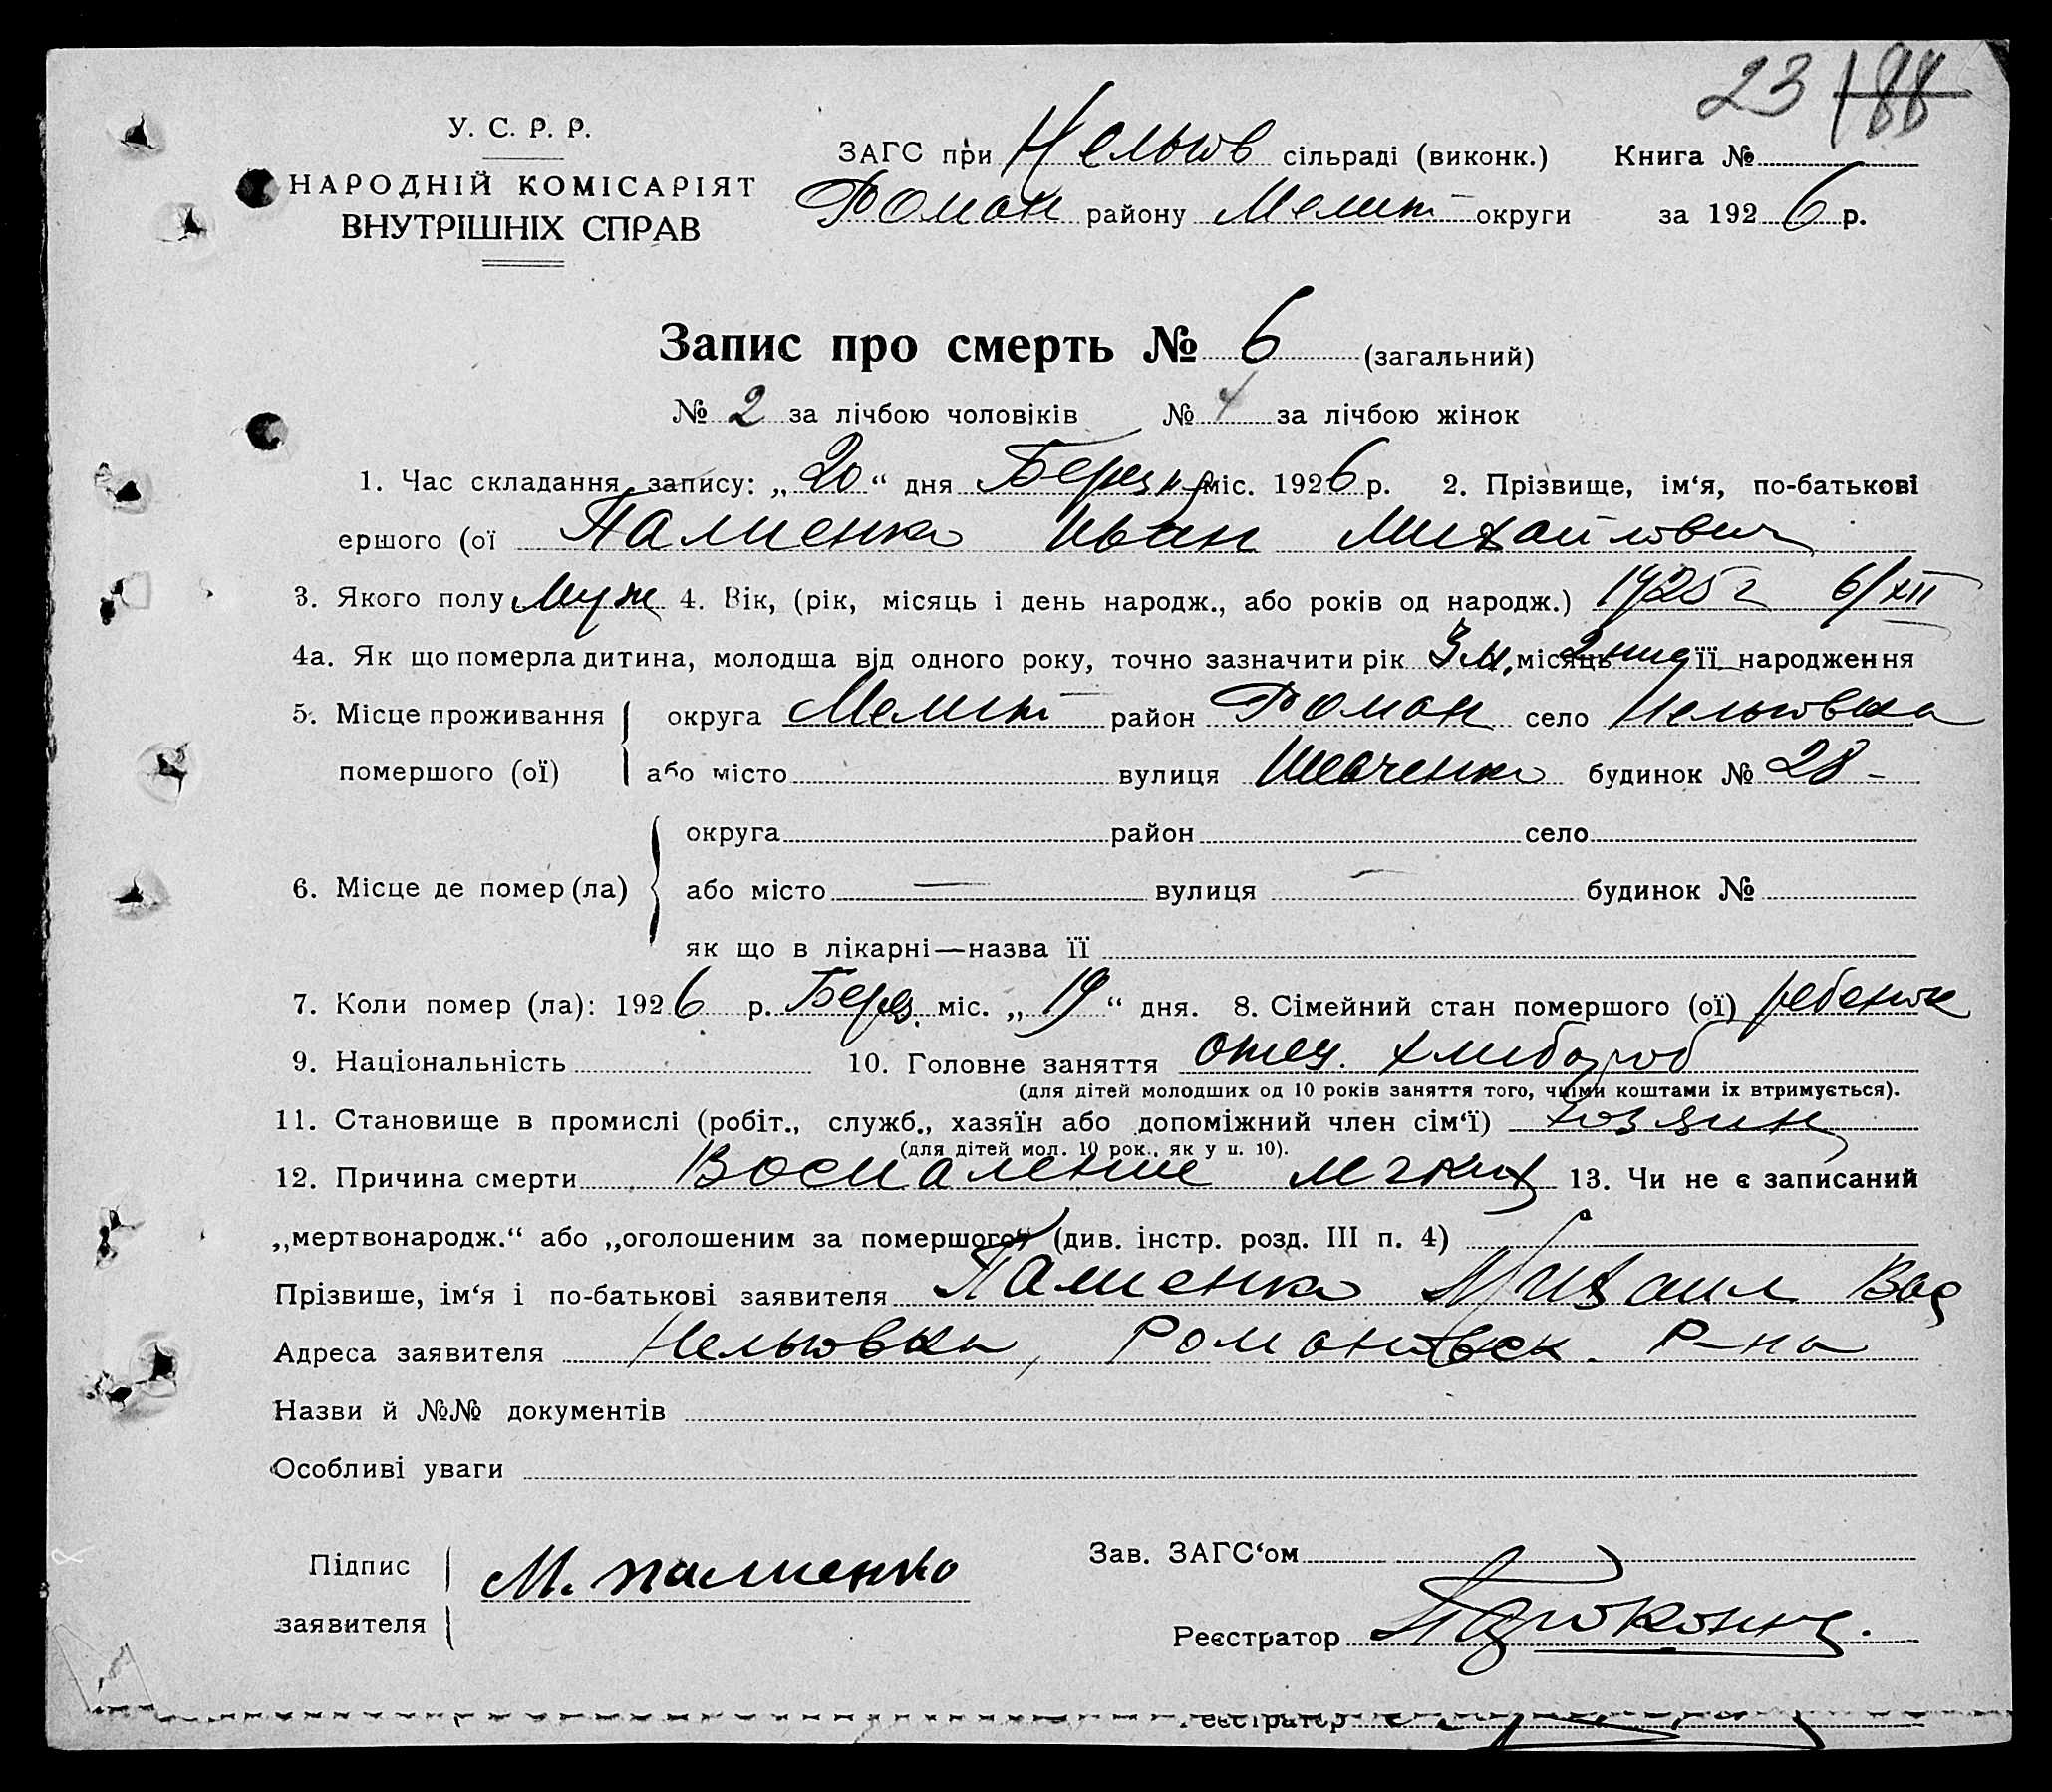 23 188
У. С. Р. Р.
НАРОДНІЙ КОМІСАРІЯТ
ВНУТРІШНІХ СПРАВ
ЗАГС при Нельгов сільраді (виконк.) Книга №
Роман району Мелит округи за 1926 р.
Запис про смерть № 6 (загальний)
№ 2 за лічбою чоловіків № 4 за лічбою жінок
1. Час складання запису: „20“ дня Березня міс. 1926 р. 2. Прізвище, ім‘я, по-батькові
ершого (ої Палиенко Иван Михайлович
3. Якого полу Муж 4. Вік, (рік, місяць і день народж., або років од народж.) 1925 г 6/XII
4а. Як що померла дитина, молодша від одного року, точно зазначити рік 3 м. місяць її народження
5. Місце проживання округа Мелит район Роман село Нельговка
помершого (ої) або місто вулиця Шевченко будинок № 28 –
округа район село
6. Місце де помер (ла) або місто — вулиця — будинок №
як що в лікарні—назва її
7. Коли помер (ла): 1926 р. Берез. міс. „19“ дня. 8. Сімейний стан помершого (ої) ребенок
9. Національність 10. Головне заняття отец. хлибороб
(для дітей молодших од 10 років заняття того, чиїми коштами їх втримується).
11. Становище в промислі (робіт., служб., хазяїн або допоміжний член сім‘ї) хозяин
(для дітей мол. 10 рок., як у п. 10).
12. Причина смерти Воспаление легких 13. Чи не є записаний
„мертвонародж.“ або „оголошеним за померщого“ (див. інстр. розд. III п. 4)
Прізвише, ім‘я і по-батькові заявителя Палиенко Михаил
Адреса заявителя Нельговка, Романовск. Р-на
Назви й №№ документів
Особливі уваги
Підпис
заявителя М. Палиенко
Зав. ЗАГС‘ом
Реєстратор
Реєстратор